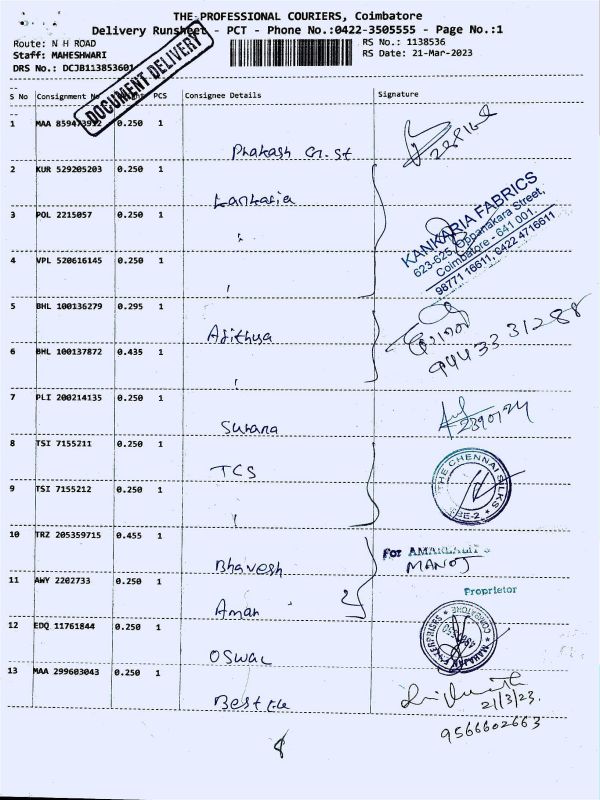 THE PROFESSIONAL COURIERS, Coimbatore
Delivery Runsheet - PCT - Phone No.:0422-3505555 - Page No.:1
Route: N H ROAD
RS No.: 1138536
Staff: MAHESHWARI
RS Date: 21-Mar-2023
DRS No.: DCJB113853601
DOCUMENT DELIVERY
S No Consignment No PCS Consignee Details Signature
1 MAA 0.250 1
Prakash
2 KUR 529205203 0.250 1
Kankaria
3 POL 2215057 0.250 1
"
KANKARIA FABRICS
623-625, Oppanakara Street,
Coimbatore - 641 001.
98771 16611, 0422 4716611
4 VPL 520616145 0.250 1
"
5 BHL 100136279 0.295 1
Ajithya
94433 31288
6 BHL 100137872 0.435 1
"
7 PLI 200214135 0.250 1
Surana
2390124
8 TSI 7155211 0.250 1
TCS
THE CHENNAI SILKS
CBE-2
9 TSI 7155212 0.250 1
"
10 TRZ 205359715 0.455 1
Bhavesh
For
MANOJ
11 AWY 2202733 0.250 1
Aman
Proprietor
12 EDQ 11761844 0.250 1
OSWAL
ENTERPRISES
COIMBATORE
13 MAA 299603043 0.250 1
Best
21/3/23.
9566602663